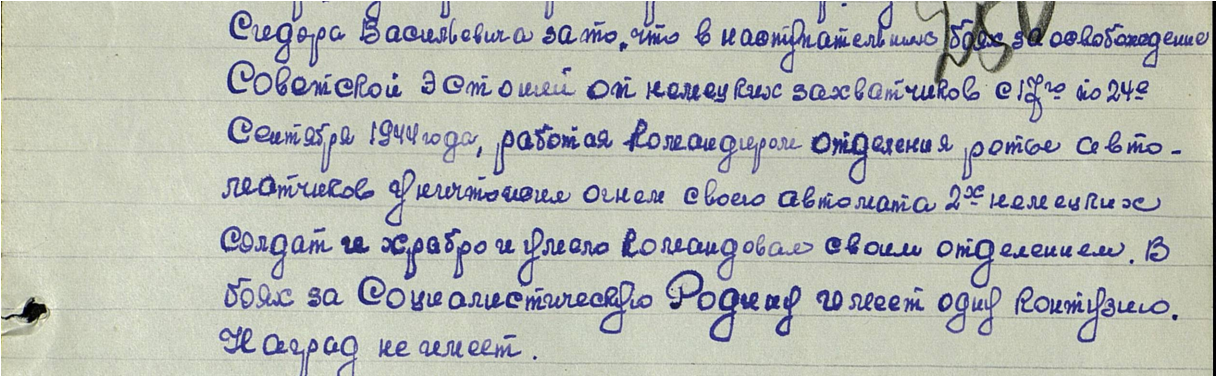 Сидора Васильевича за то, что в наступательных боях за освобождение
Советской Эстонии от немецких захватчиков с 17го по 24е
Сентября 1944 года, работая Командиром отделения роты авто-
матчиков уничтожил огнем своего автомата 2х немецких
солдат и храбро и умело Командовал своим отделением. В
боях за Социалистическую Родину имеет одну Контузию.
Наград не имеет.